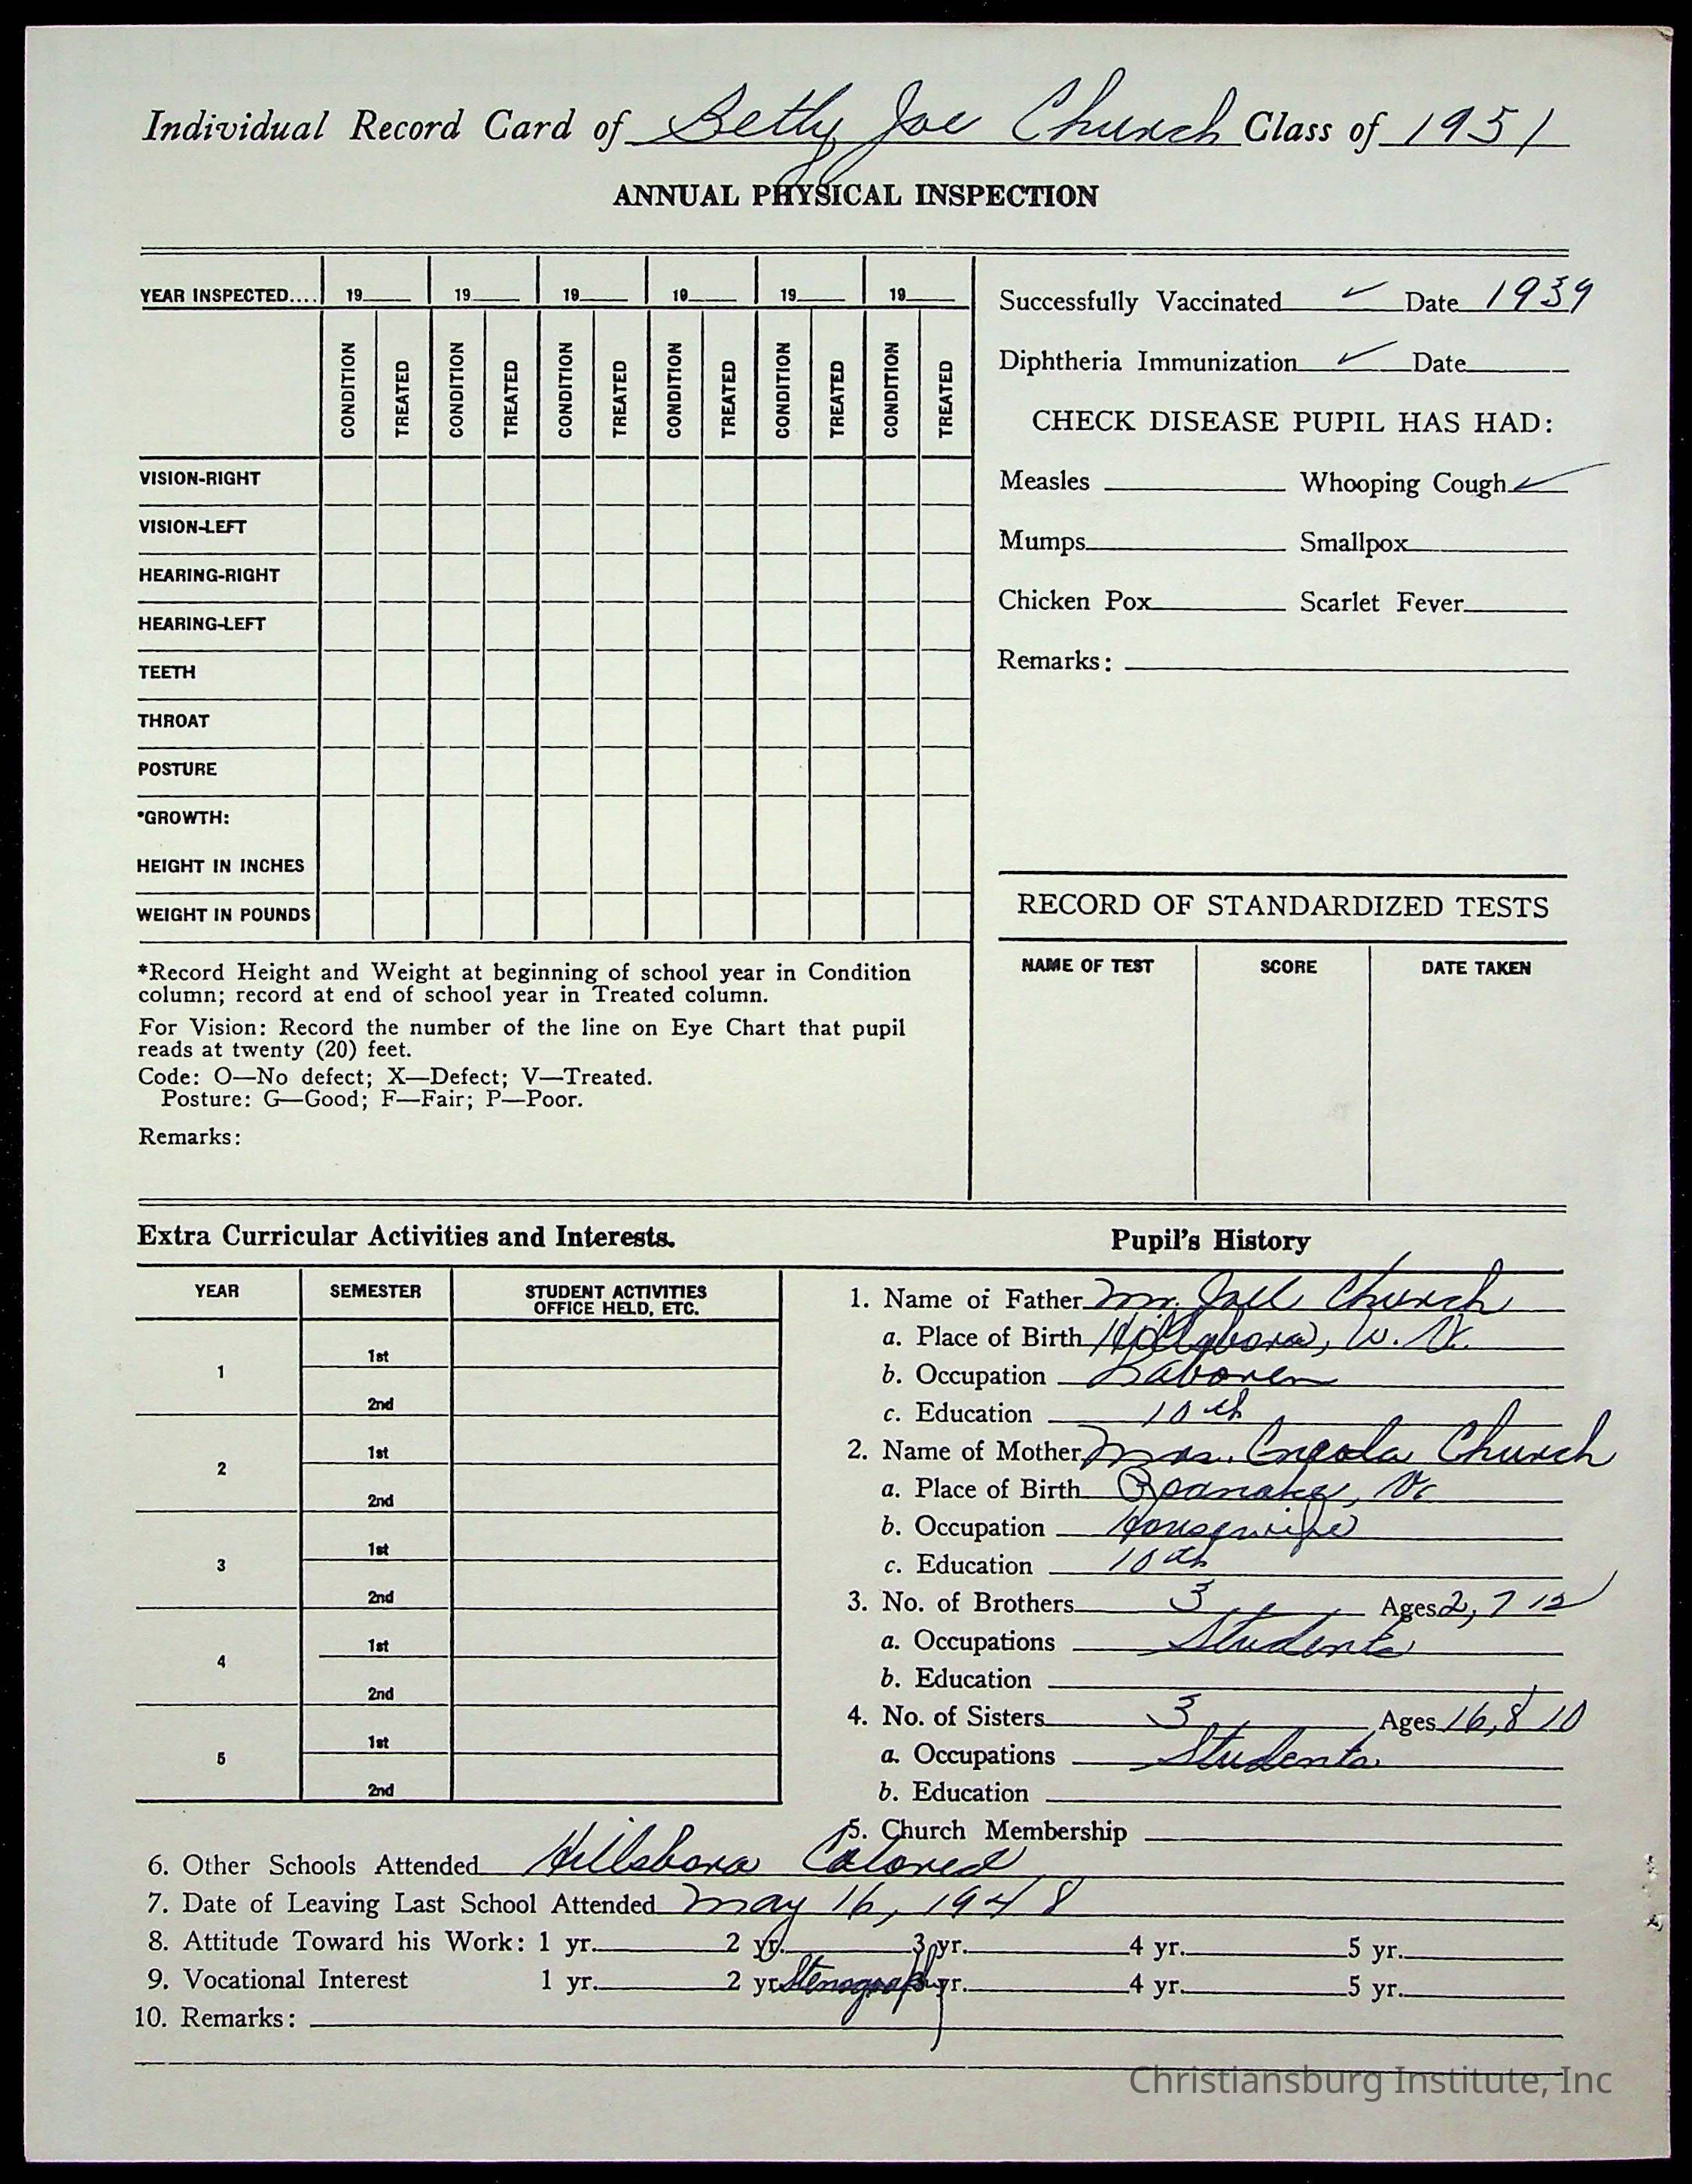 Individual Record Card of Betty Joe Church Class of 1951
ANNUAL PHYSICAL INSPECTION
YEAR INSPECTED.... 19 19 19 19 19 19
CONDITION TREATED CONDITION TREATED CONDITION TREATED CONDITION TREATED CONDITION TREATED CONDITION TREATED
VISION-RIGHT
VISION-LEFT
HEARING-RIGHT
HEARING-LEFT
TEETH
THROAT
POSTURE
*GROWTH:
HEIGHT IN INCHES
WEIGHT IN POUNDS
*Record Height and Weight at beginning of school year in Condition
column; record at end of school year in Treated column.
For Vision: Record the number of the line on Eye Chart that pupil
reads at twenty (20) feet.
Code: O—No defect; X—Defect; V—Treated.
Posture: G—Good; F—Fair; P—Poor.
Remarks:
Successfully Vaccinated ✓ Date 1939
Diphtheria Immunization ✓ Date
CHECK DISEASE PUPIL HAS HAD:
Measles Whooping Cough ✓
Mumps Smallpox
Chicken Pox Scarlet Fever
Remarks:
RECORD OF STANDARDIZED TESTS
NAME OF TEST SCORE DATE TAKEN
Extra Curricular Activities and Interests.
YEAR SEMESTER STUDENT ACTIVITIES
OFFICE HELD, ETC.
1 1st
2nd
2 1st
2nd
3 1st
2nd
4 1st
2nd
5 1st
2nd
Pupil's History
1. Name of Father Mr. Church
a. Place of Birth Hillsboro, W. Va.
b. Occupation Laborer
c. Education 10th
2. Name of Mother Mrs. Church
a. Place of Birth Roanoke, Va
b. Occupation Housewife
c. Education 10th
3. No. of Brothers 3 Ages 2, 7 12
a. Occupations Students
b. Education
4. No. of Sisters 3 Ages 16, 8 10
a. Occupations Students
b. Education
5. Church Membership
6. Other Schools Attended Hillsboro Colored
7. Date of Leaving Last School Attended May 16, 1948
8. Attitude Toward his Work: 1 yr. 2 yr. 3 yr. 4 yr. 5 yr.
9. Vocational Interest 1 yr. 2 yr. Stenography 3 yr. 4 yr. 5 yr.
10. Remarks:
Christiansburg Institute, Inc